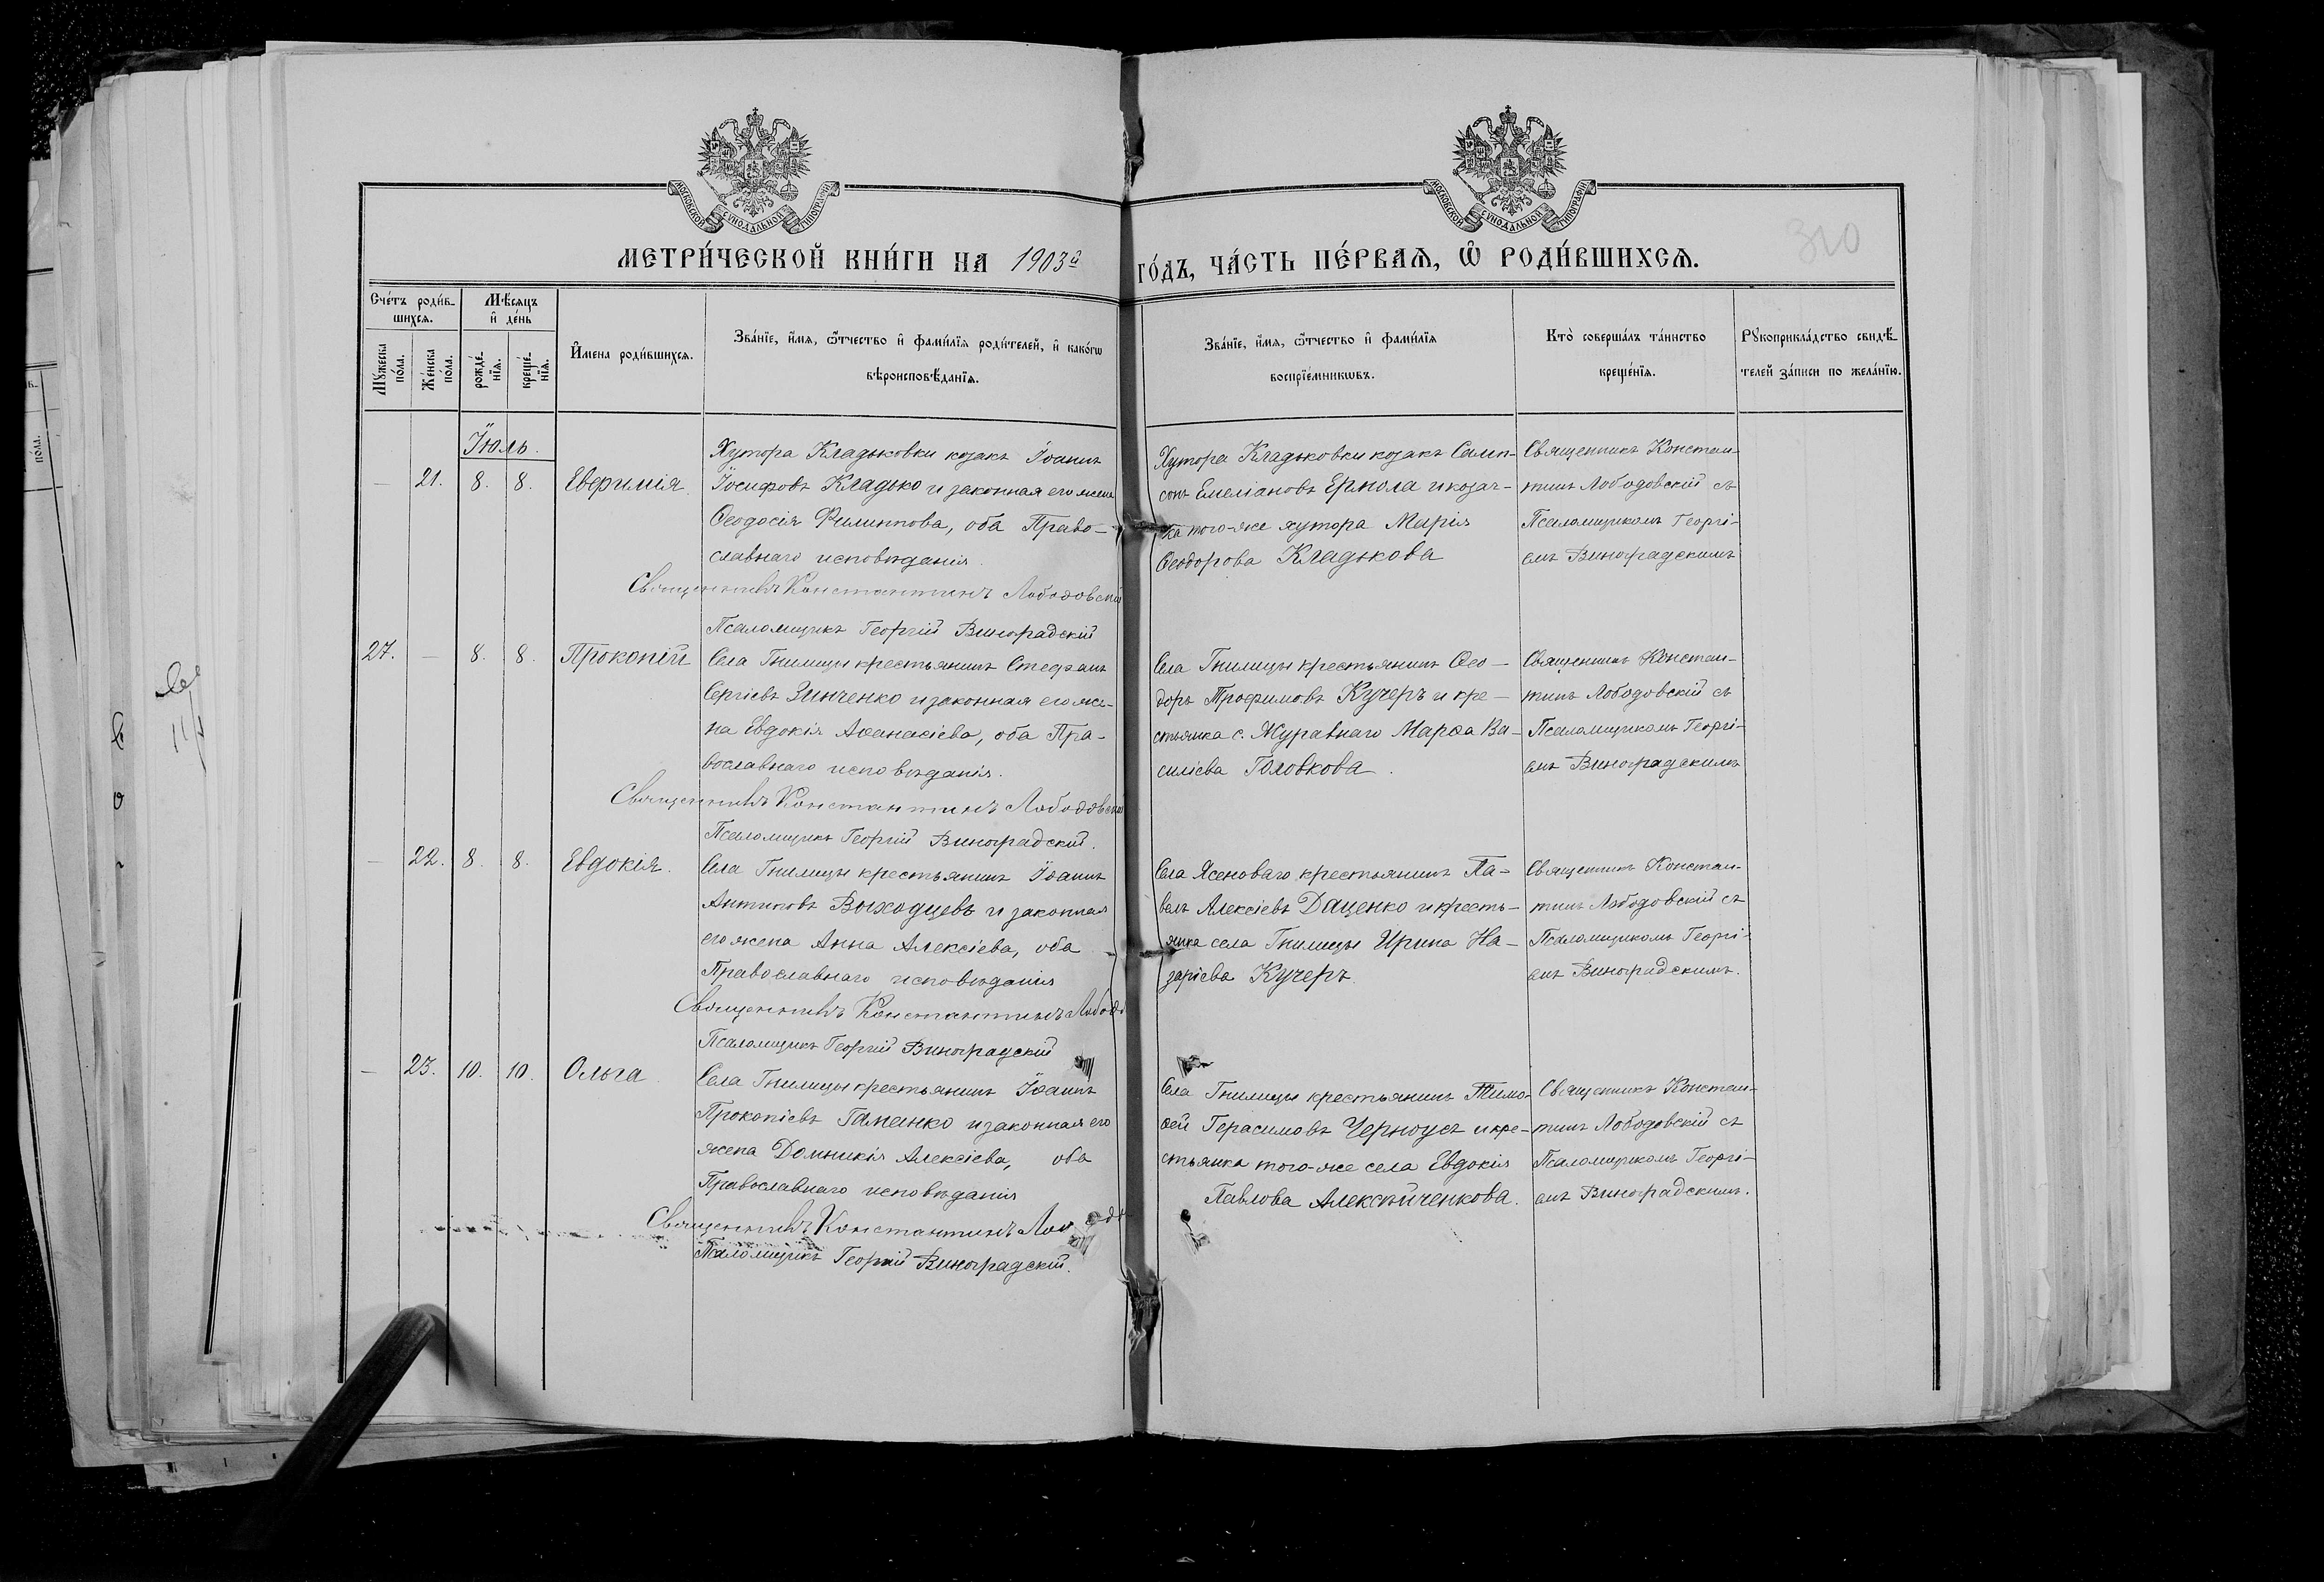 МОСКОВСКОЙ СѴНОДАЛЬНОЙ ТИПОГРАФІИ
МОСКОВСКОЙ СѴНОДАЛЬНОЙ ТИПОГРАФІИ
310
МЕТРИ́ЧЕСКОЙ КНИ́ГИ НА 1903й ГО́ДЪ, ЧА́СТЬ ПЕ́РВАѦ, Ѡ҆ РОДИ́ВШИХСѦ.
Сче́тъ роди́в-
шихсѧ.
Мꙋ́жеска по́ла.
Же́нска по́ла.
Мѣ́сѧцъ
и҆ де́нь
рожде́-нїѧ.
креще́-нїѧ.
И҆мена роди́вшихсѧ.
Зва́нїе, и҆́мѧ, ѻ҆́тчество и҆ фами́лїѧ роди́телей, и҆ како́гѡ
вѣроисповѣ́данїѧ.
Зва́нїе, и҆́мѧ, ѻ҆́тчество и҆ фами́лїѧ
воспрїе́мникѡвъ.
Кто̀ соверша́лъ та́инство
креще́нїѧ.
Рꙋкоприкла́дство свидѣ́-
телей за́писи по жела́нїю.
Іюль.
— 21. 8. 8. Евфимія
Хутора Кладьковки козакъ Іоаннъ
Іосифовъ Кладько и законная его жена
Ѳеодосія Филиппова, оба Право-
славнаго исповѣданія.
Священникъ Константинъ Лободовскій
Псаломщикъ Георгій Виноградскій
Хутора Кладьковки козакъ Самп-
сонъ Емеліановъ Ермола и козач-
ка того-же хутора Марія
Ѳеодорова Кладькова
Священникъ Констан-
тинъ Лободовскій съ
Псаломщикомъ Георгі-
емъ Виноградскимъ
27. — 8. 8. Прокопій
Села Гнилицы крестьянинъ Стефанъ
Сергіевъ Зинченко и законная его же-
на Евдокія Аѳанасіева, оба Пра-
вославнаго исповѣданія.
Священникъ Константинъ Лободовскій
Псаломщикъ Георгій Виноградскій.
Села Гнилицы крестьянинъ Ѳео-
доръ Трофимовъ Кучеръ и кре-
стьянка с. Журавнаго Марѳа Ва-
силіева Головкова.
Священникъ Констан-
тинъ Лободовскій съ
Псаломщикомъ Георгі-
емъ Виноградскимъ
— 22. 8. 8. Евдокія.
Села Гнилицы крестьянинъ Іоаннъ
Антиповъ Выходцевъ и законная
его жена Анна Алексіева, оба
Православнаго исповѣданія
Священникъ Константинъ Лободо
Псаломщикъ Георгій Виноградскій
Села Ясеноваго крестьянинъ Па-
велъ Алексіевъ Даценко и кресть-
янка села Гнилицы Ирина На-
заріева Кучеръ
Священникъ Констан-
тинъ Лободовскій съ
Псаломщикомъ Георгі-
емъ Виноградскимъ.
— 23. 10. 10. Ольга
Села Гнилицы крестьянинъ Іоаннъ
Прокопіевъ Гаменко и законная его
жена Домникія Алексіева, оба
Православнаго исповѣданія
Священникъ Константинъ
Псаломщикъ Георгій Виноградскій.
Села Гнилицы крестьянинъ Тимо-
ѳей Герасимовъ Черноусъ и кре-
стьянка того-же села Евдокія
Павлова Алексѣйченкова.
Священникъ Констан-
тинъ Лободовскій съ
Псаломщикомъ Георгі-
емъ Виноградскимъ.